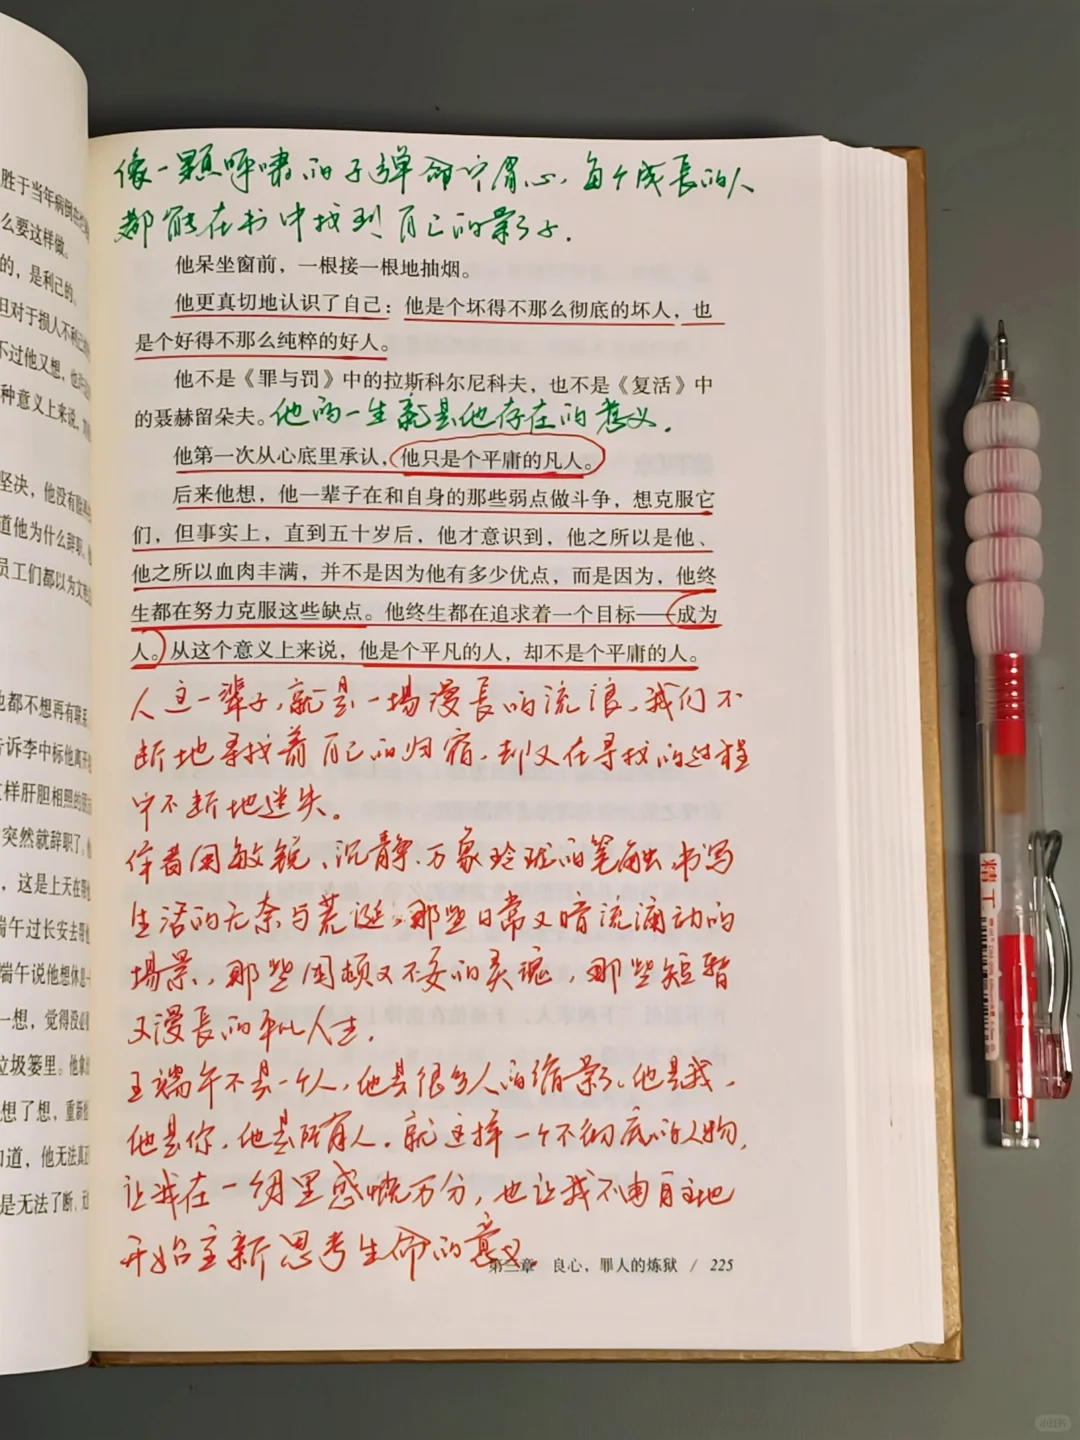 胜于当年病倒在
么要这样做。
的，是利己的。
但对于损人不利己
不过他又想，他
种意义上来说，
坚决，他没有
道他为什么辞职。
员工们都以为
也都不想再有联系
告诉李中标他离开
这样肝胆相照的
突然就辞职了。
，这是上天在
端午过长安去
端午说他想休息一
一想，觉得没必
垃圾篓里。他
想了想，重新
知道，他无法真正
是无法了断，
像一颗呼啸的子弹命中眉心，每个成長的人
都能在书中找到自己的影子.
他呆坐窗前，一根接一根地抽烟。
他更真切地认识了自己：他是个坏得不那么彻底的坏人，也
是个好得不那么纯粹的好人。
他不是《罪与罚》中的拉斯科尔尼科夫，也不是《复活》中
的聂赫留朵夫。他的一生就是他存在的意义.
他第一次从心底里承认，他只是个平庸的凡人。
后来他想，他一辈子在和自身的那些弱点做斗争，想克服它
们，但事实上，直到五十岁后，他才意识到，他之所以是他、
他之所以血肉丰满，并不是因为他有多少优点，而是因为，他终
生都在努力克服这些缺点。他终生都在追求着一个目标——成为
人。从这个意义上来说，他是个平凡的人，却不是个平庸的人。
人这一辈子，就是一場漫長的流浪，我们不
断地寻找着自己的归宿，却又在寻找的过程
中不断地迷失。
作者用敏锐、沉静、万象玲珑的笔触书写
生活的无奈与荒诞，那些日常又暗流涌动的
场景，那些困顿又不妥的灵魂，那些短暂
又漫長的平凡人生.
王端午不是一个人，他是很多人的缩影。他是我，
他是你，他是所有人。就这样一个不彻底的人物，
让我在一瞬里感慨万分，也让我不由自主地
开始重新思考生命的意义
第三章 良心，罪人的炼狱 / 225
精工
小红书